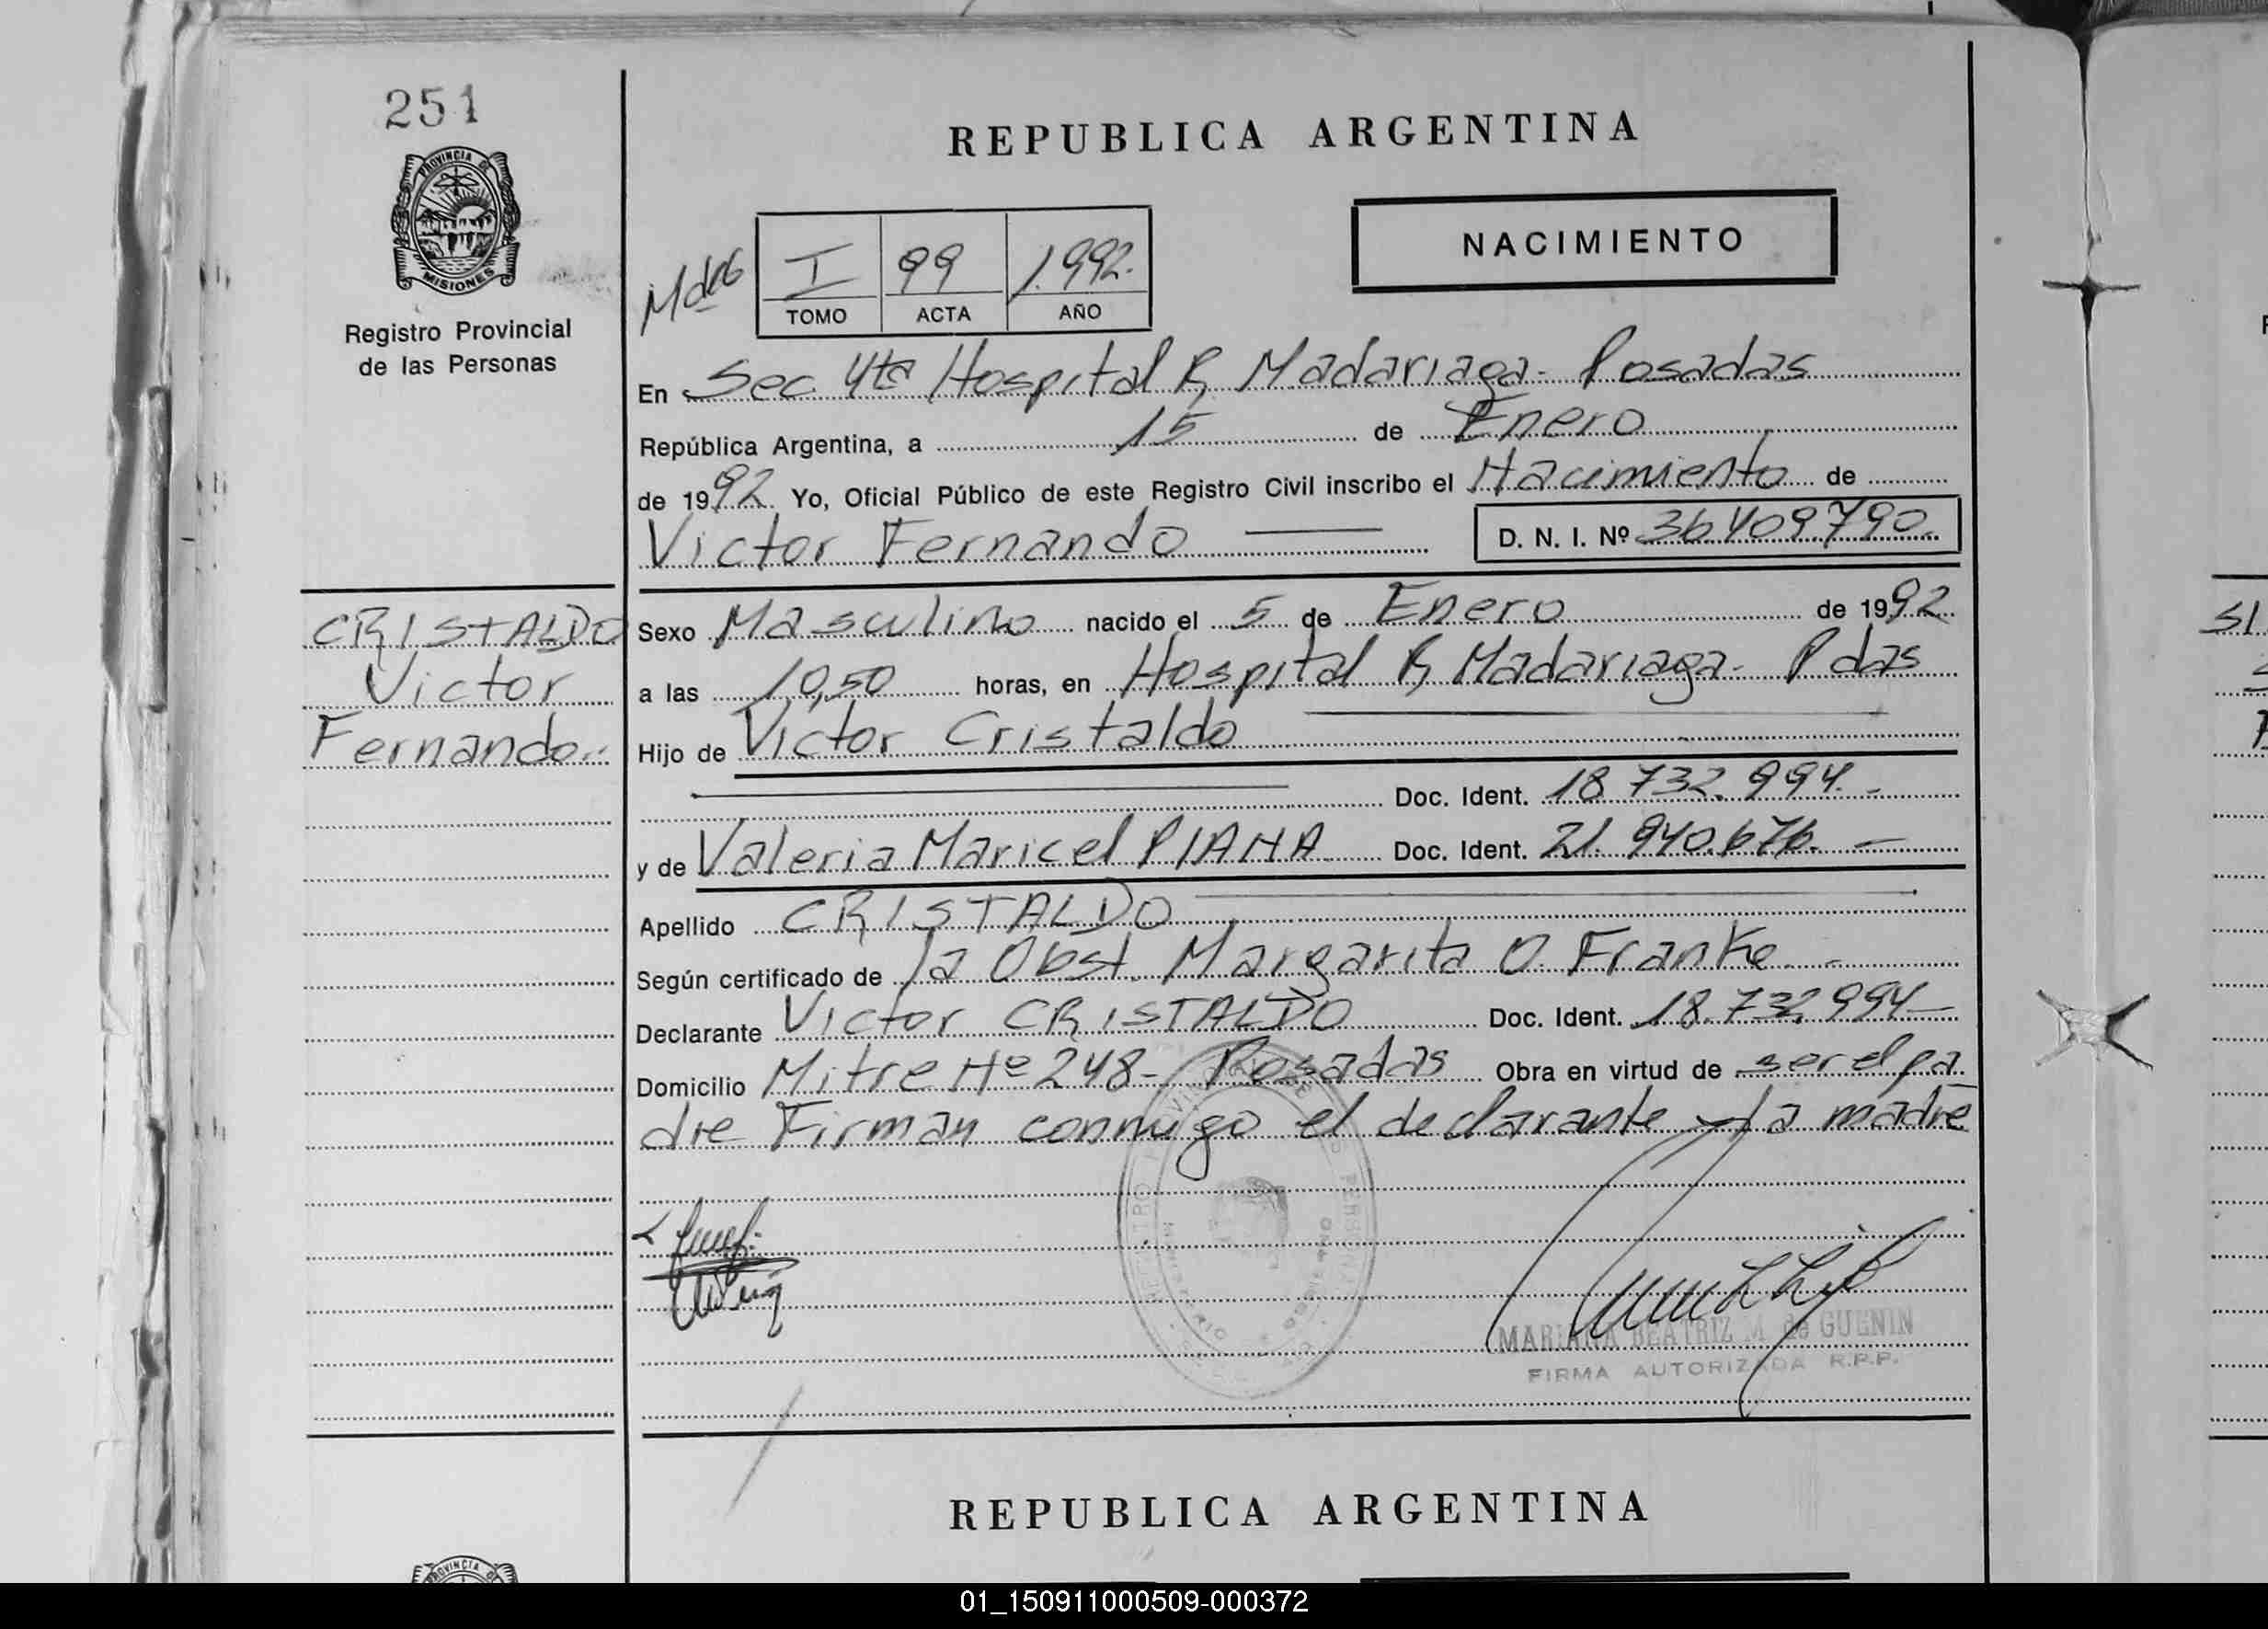 251
PROVINCIA DE
MISIONES
Registro Provincial
de las Personas
REPUBLICA ARGENTINA
NACIMIENTO
I 99 1.992.
TOMO ACTA AÑO
En Sec. 4ta Hospital R, Madariaga - Posadas
República Argentina, a 15 de Enero
de 1992 Yo, Oficial Público de este Registro Civil inscribo el Nacimiento de
Victor Fernando D. N. I. Nº 36409790.
CRISTALDO
Victor
Fernando.
Sexo Masculino nacido el 5 de Enero de 1992
a las 10,50 horas, en Hospital R, Madariaga - Pdas
Hijo de Victor Cristaldo
Doc. Ident. 18.732.994.-
y de Valeria Maricel PIANA Doc. Ident. 21.940.676.-
Apellido CRISTALDO
Según certificado de la Obst. Margarita O. Franke
Declarante Victor CRISTALDO Doc. Ident. 18.732.994-
Domicilio Mitre Nº 248- Posadas Obra en virtud de ser el pa
dre Firman conmigo el declarante y la madre
MARIANA BEATRIZ M. de GUENIN
FIRMA AUTORIZADA R.P.P.
REPUBLICA ARGENTINA
01_150911000509-000372